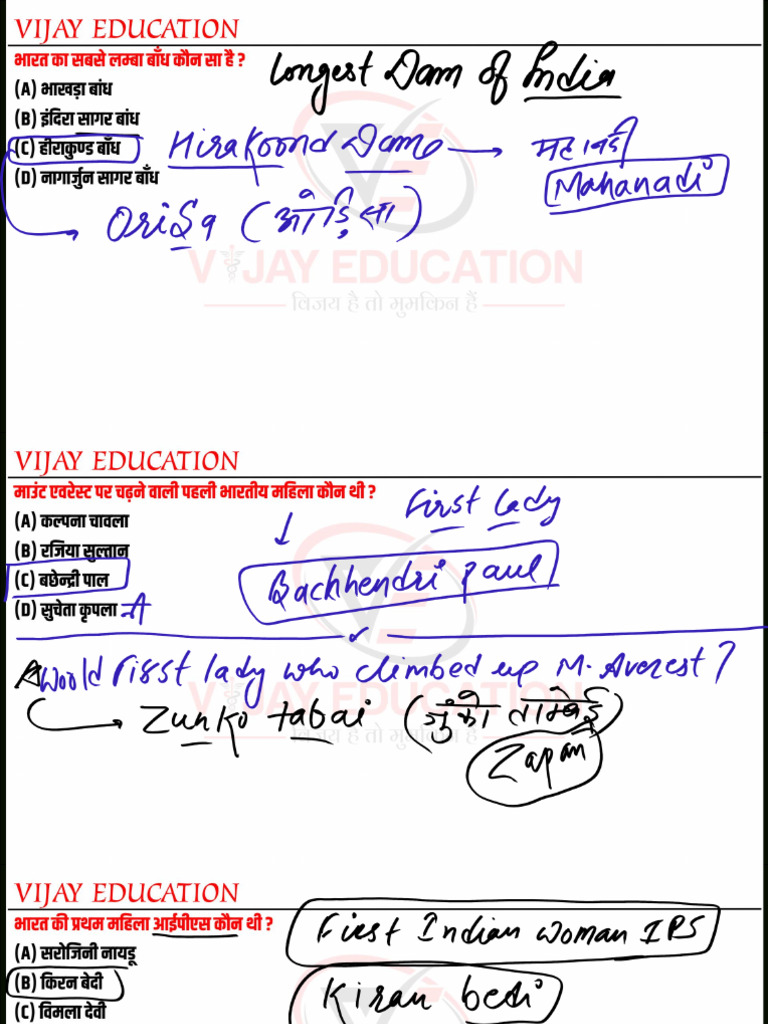 VIJAY EDUCATION
भारत का सबसे लम्बा बाँध कौन सा है ?
Longest Dam of India
(A) भाखड़ा बांध
(B) इंदिरा सागर बांध
(C) हीराकुण्ड बाँध
Hirakoond Dam → महानदी
Mahanadi
(D) नागार्जुन सागर बाँध
Orisa (ओड़िसा)
VIJAY EDUCATION
विजय है तो मुमकिन हैं
VIJAY EDUCATION
माउंट एवरेस्ट पर चढ़ने वाली पहली भारतीय महिला कौन थी ?
First Lady
(A) कल्पना चावला
(B) रजिया सुल्तान
(C) बछेन्द्री पाल
Bachhendri paul
(D) सुचेता कृपलानी
World First lady who climbed up M. Averest ?
VIJAY EDUCATION
Zunko tabai (जुंको ताबेई)
विजय है तो मुमकिन हैं
Zapan
VIJAY EDUCATION
भारत की प्रथम महिला आईपीएस कौन थी ?
First Indian woman IPS
(A) सरोजिनी नायडू
(B) किरन बेदी
Kiran bedi
(C) विमला देवी